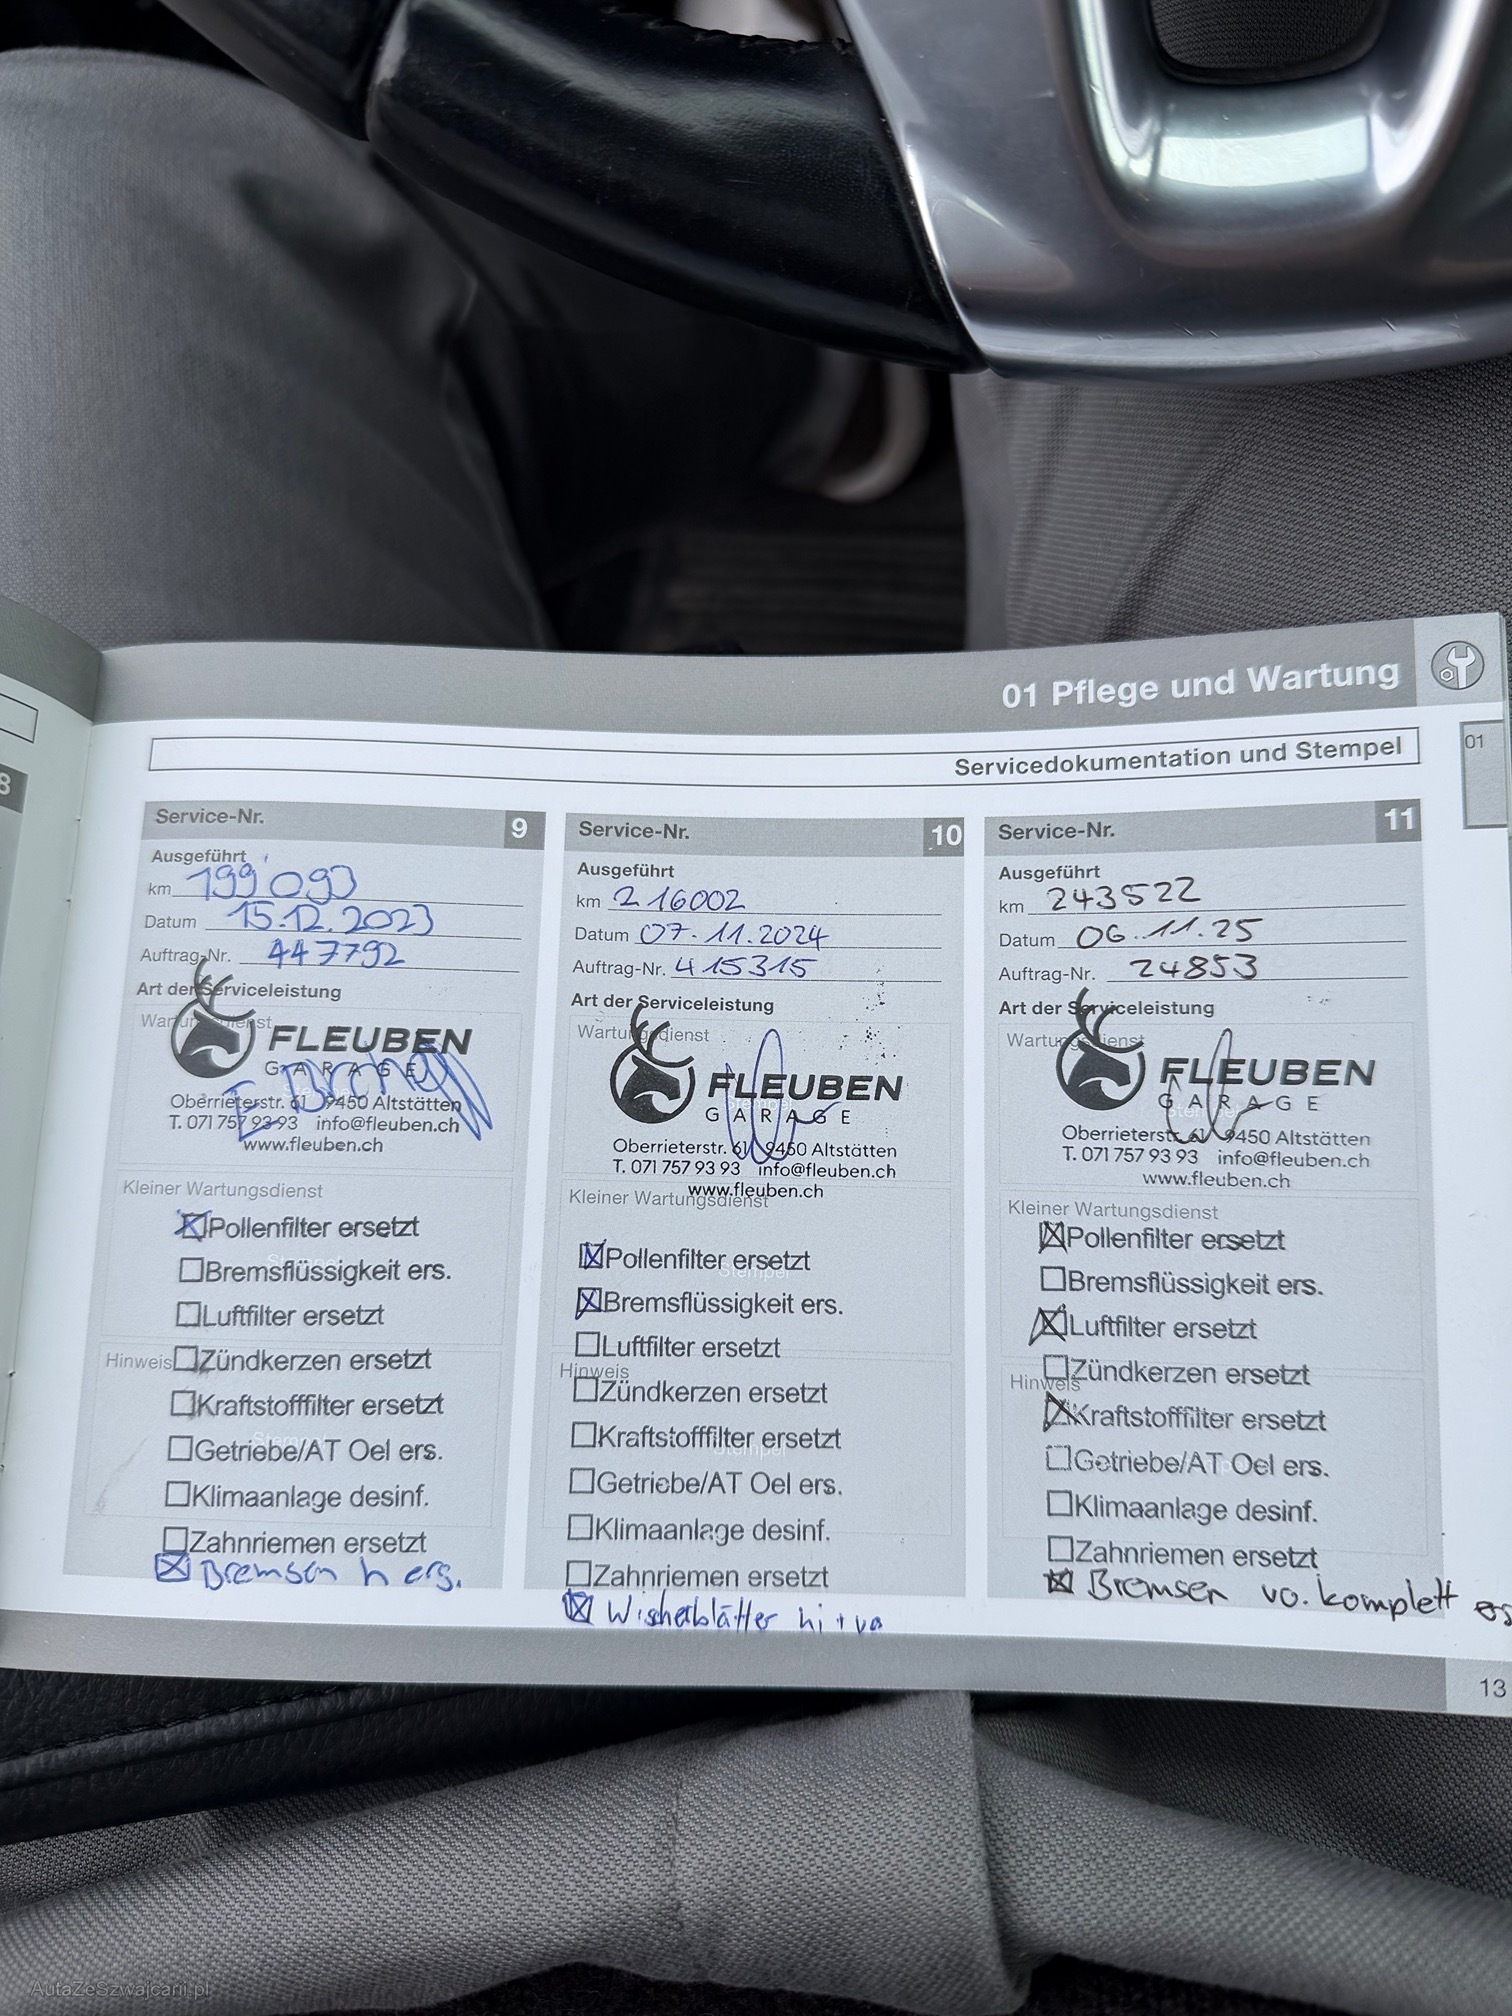 01 Pflege und Wartung
Servicedokumentation und Stempel
01
8
Service-Nr. 9
Ausgeführt
km 199 093
Datum 15.12.2023
Auftrag-Nr. 447792
Art der Serviceleistung
Wartungsdienst
FLEUBEN
GARAGE
Oberrieterstr. 61 9450 Altstätten
T. 071 757 93 93 info@fleuben.ch
www.fleuben.ch
Kleiner Wartungsdienst
☒Pollenfilter ersetzt
Stempel
☐Bremsflüssigkeit ers.
☐Luftfilter ersetzt
Hinweis
☐Zündkerzen ersetzt
☐Kraftstofffilter ersetzt
Stempel
☐Getriebe/AT Oel ers.
☐Klimaanlage desinf.
☐Zahnriemen ersetzt
☒ Bremsen h ers.
Service-Nr. 10
Ausgeführt
km 216002
Datum 07.11.2024
Auftrag-Nr. 415315
Art der Serviceleistung
Wartungsdienst
FLEUBEN
Stempel
GARAGE
Oberrieterstr. 61 9450 Altstätten
T. 071 757 93 93 info@fleuben.ch
www.fleuben.ch
Kleiner Wartungsdienst
☒Pollenfilter ersetzt
Stempel
☒Bremsflüssigkeit ers.
☐Luftfilter ersetzt
Hinweis
☐Zündkerzen ersetzt
☐Kraftstofffilter ersetzt
Stempel
☐Getriebe/AT Oel ers.
☐Klimaanlage desinf.
☐Zahnriemen ersetzt
☒ Wischerblätter hi + vo
Service-Nr. 11
Ausgeführt
km 243522
Datum 06.11.25
Auftrag-Nr. 24853
Art der Serviceleistung
Wartungsdienst
FLEUBEN
GARAGE
Stempel
Oberrieterstr. 61 9450 Altstätten
T. 071 757 93 93 info@fleuben.ch
www.fleuben.ch
Kleiner Wartungsdienst
☒Pollenfilter ersetzt
☐Bremsflüssigkeit ers.
☒Luftfilter ersetzt
☐Zündkerzen ersetzt
Hinweis
☒Kraftstofffilter ersetzt
☐Getriebe/AT Oel ers.
☐Klimaanlage desinf.
☐Zahnriemen ersetzt
☒ Bremsen vo. komplett ers
13
AutaZeSzwajcarii.pl